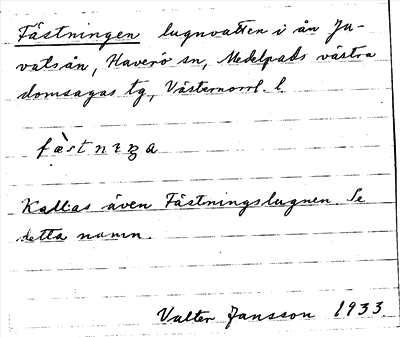 Fästningen lugnvatten i ån Ju-
vatsån, Haverö sn, Medelpads västra
domsagas tg, Västernorrl. l.
fæ̀stnıŋa
Kallas även Fästningslugnen. Se
detta namn.
Valter Jansson 1933